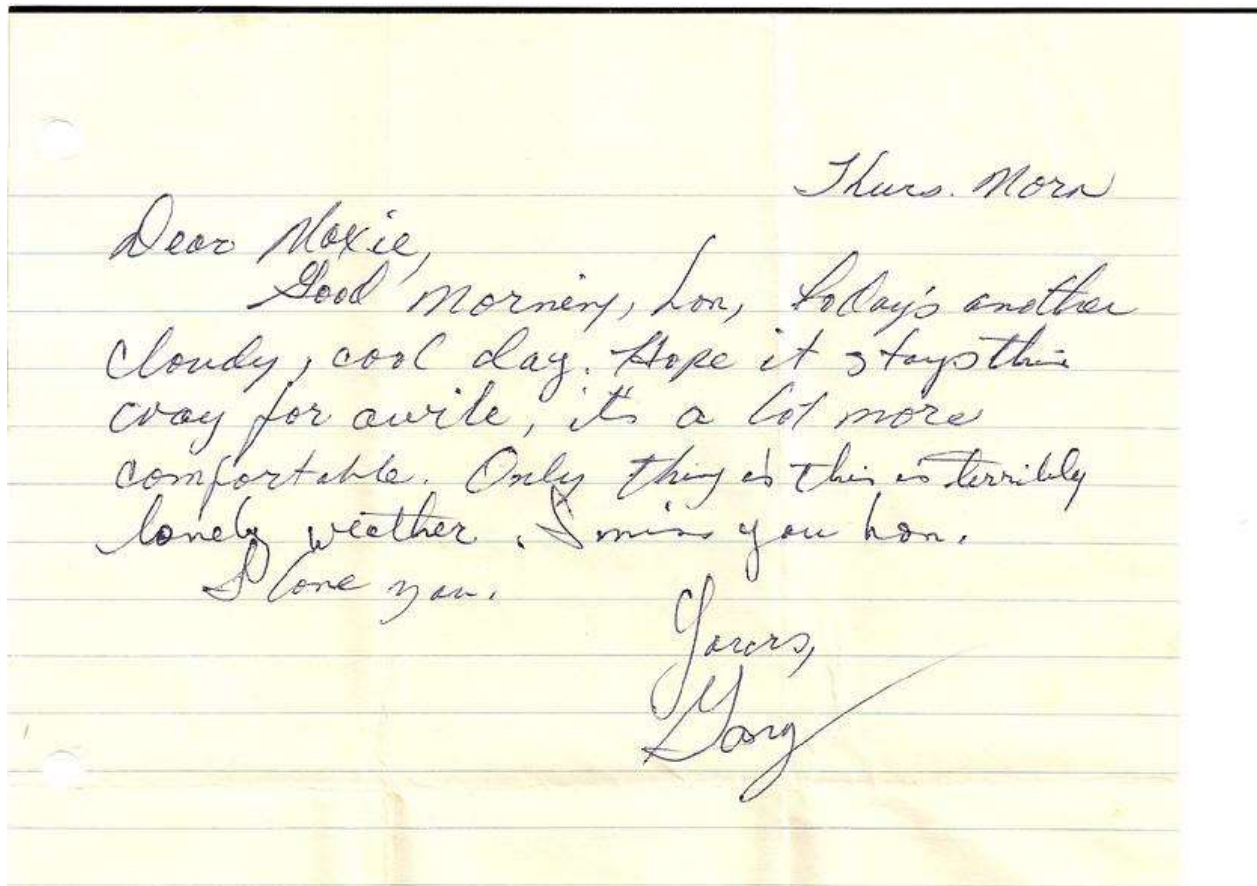 Thurs. Morn
Dear Moxie,
Good morning, hon, today's another
cloudy, cool day. Hope it stays this
way for awile, it's a lot more
comfortable. Only thing is this is terribly
lonely weather. I miss you hon.
I love you.
Yours,